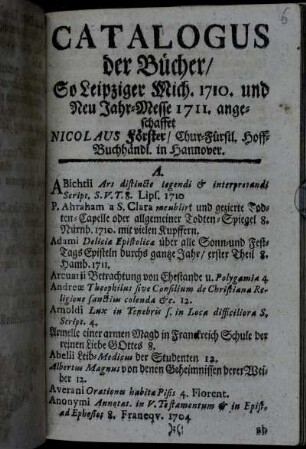 CATALOGUS
der Bücher/
So Leipziger Mich. 1710. und
Neu Jahr-Messe 1711. ange-
schaffet
NICOLAUS Förster/ Chur-Fürstl. Hoff-
Buchhändl. in Hannover.
A.
ABichtii Ars distincte legendi & interpretandi
Script. S. V. T. 8. Lips. 1710
P. Abraham a S. Clara meublirt und gezierte Tod-
ten-Capelle oder allgemeiner Todten-Spiegel 8.
Nürnb. 1710. mit vielen Kupffern.
Adami Delicia Epistolica über alle Sonn und Fest-
Tags Episteln durchs gantze Jahr/ erster Theil 8.
Hamb. 1711.
Arcuarii Betrachtung von Ehestande u. Polygamia 4
Andreæ Theophilus sive Consilium de Christiana Re-
ligione sanctius colenda &c. 12.
Arnoldi Lux in Tenebris s. in Loca difficiliora S.
Script. 4.
Armelle einer armen Magd in Franckreich Schule der
reinen Liebe GOttes 8.
Abelii Leib-Medicus der Studenten 12.
Albertus Magnus von denen Geheimnissen derer Wei-
ber 12.
Averani Orationes habita Pisis 4. Florent.
Anonymi Annotat. in V. Testamentum & in Epist.
ad Ephesios 8. Franeqv. 1704